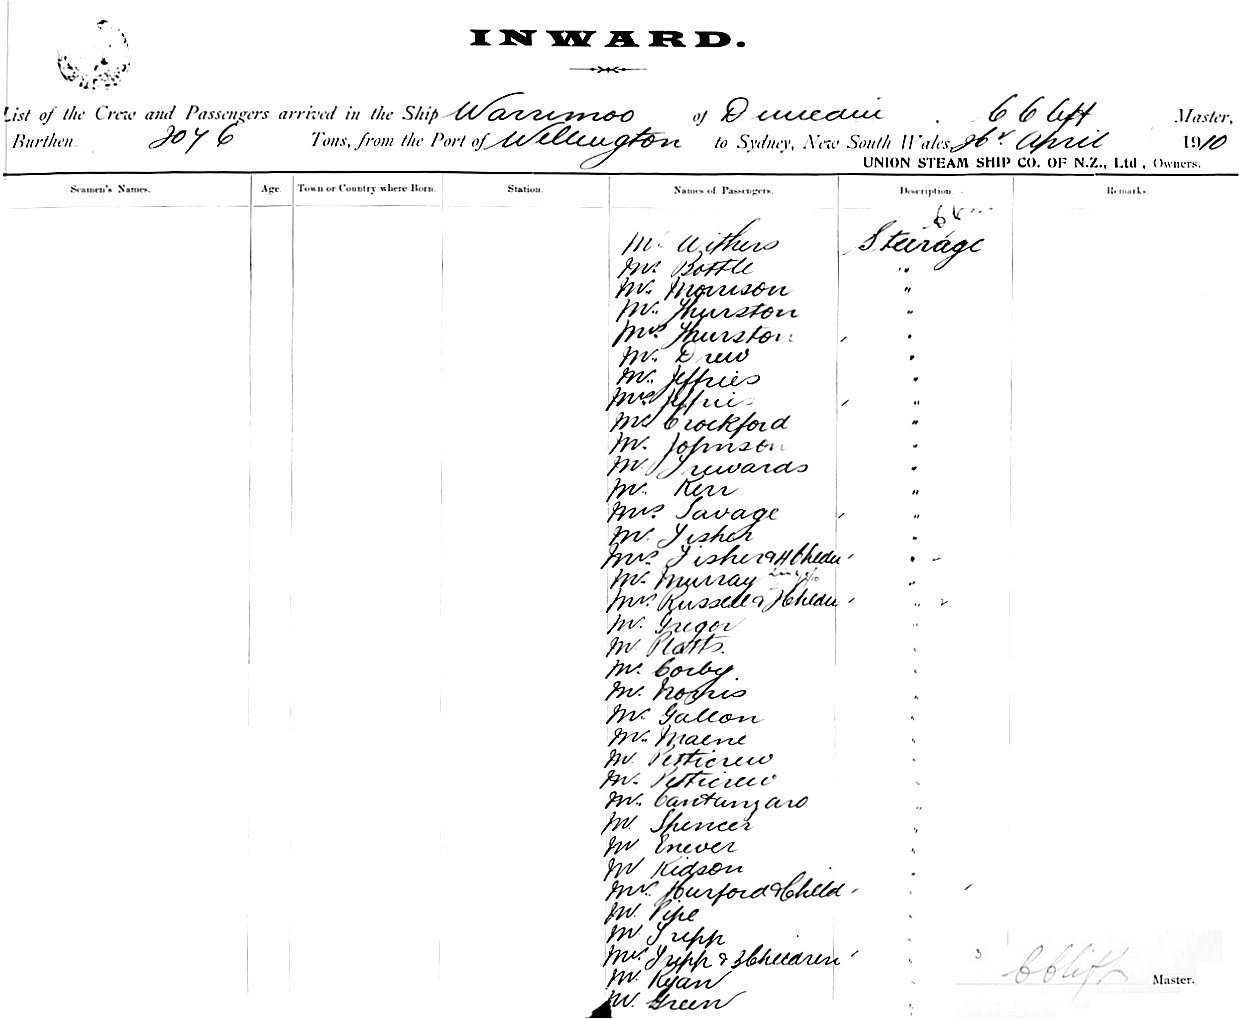 INWARD.
List of the Crew and Passengers arrived in the Ship Warrimoo of Dunedin. C Clift Master,
Burthen 3076 Tons, from the Port of Wellington to Sydney, New South Wales, 26th April 1910
UNION STEAM SHIP CO. OF N.Z., Ltd, Owners.
Seamen's Names. Age. Town or Country where Born. Station. Names of Passengers. Description. Remarks.
Mr Withers Steerage
Mr Bottle "
Mr. Morrison "
Mr. Thurston "
Mrs Thurston "
Mr. Drew "
Mr. Jeffries "
Mrs Jeffries "
Mr Crockford "
Mr. Johnson "
Mr Trewards "
Mr. Kerr "
Mrs Savage "
Mr. Fisher "
Mrs Fisher & 4 Childn "
Mr. Murray "
Mrs Russell & Childn "
Mr. Gregor "
Mr Platts. "
Mr. Corby "
Mr. Norris "
Mr. Gallon "
Mr. Maene "
Mr Petticrew "
Mr. Petticrew "
Mr. Cantanzaro "
Mr Spencer "
Mr Enever "
Mr Kidson "
Mrs. Hurford & Child "
Mr. Pipe "
Mr Tripp "
Mrs Tripp & 3 Children " 3
Mr. Ryan " C Clift Master.
Mr. Green "